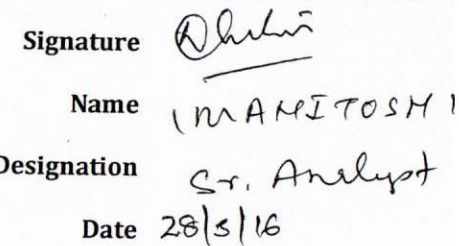 Signature
Name (MAHITOSH)
Designation Sr. Analyst
Date 28/5/16